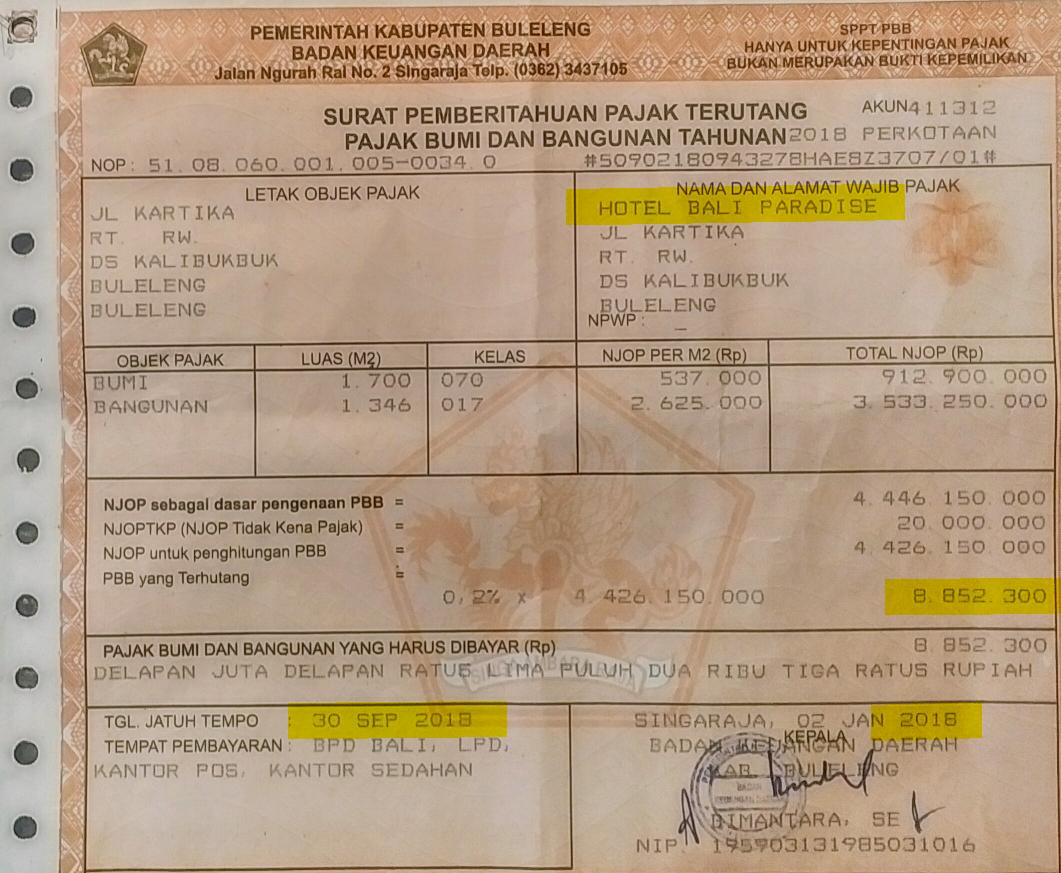 PEMERINTAH KABUPATEN BULELENG
BADAN KEUANGAN DAERAH
Jalan Ngurah Rai No. 2 Singaraja Telp. (0362) 3437105
SPPT PBB
HANYA UNTUK KEPENTINGAN PAJAK
BUKAN MERUPAKAN BUKTI KEPEMILIKAN
SURAT PEMBERITAHUAN PAJAK TERUTANG AKUN 411312
PAJAK BUMI DAN BANGUNAN TAHUNAN 2018 PERKOTAAN
NOP : 51.08.060.001.005-0034.0 #50902180943278HAE8Z3707/01#
LETAK OBJEK PAJAK
JL KARTIKA
RT. RW.
DS KALIBUKBUK
BULELENG
BULELENG
NAMA DAN ALAMAT WAJIB PAJAK
HOTEL BALI PARADISE
JL KARTIKA
RT. RW.
DS KALIBUKBUK
BULELENG
NPWP : _
OBJEK PAJAK LUAS (M2) KELAS NJOP PER M2 (Rp) TOTAL NJOP (Rp)
BUMI 1.700 070 537.000 912.900.000
BANGUNAN 1.346 017 2.625.000 3.533.250.000
NJOP sebagai dasar pengenaan PBB = 4.446.150.000
NJOPTKP (NJOP Tidak Kena Pajak) = 20.000.000
NJOP untuk penghitungan PBB = 4.426.150.000
PBB yang Terhutang =
0,2% x 4.426.150.000 8.852.300
PAJAK BUMI DAN BANGUNAN YANG HARUS DIBAYAR (Rp) 8.852.300
DELAPAN JUTA DELAPAN RATUS LIMA PULUH DUA RIBU TIGA RATUS RUPIAH
TGL. JATUH TEMPO : 30 SEP 2018
TEMPAT PEMBAYARAN : BPD BALI, LPD,
KANTOR POS, KANTOR SEDAHAN
SINGARAJA, 02 JAN 2018
KEPALA
BADAN KEUANGAN DAERAH
KAB. BULELENG
BIMANTARA, SE
NIP. 195903131985031016